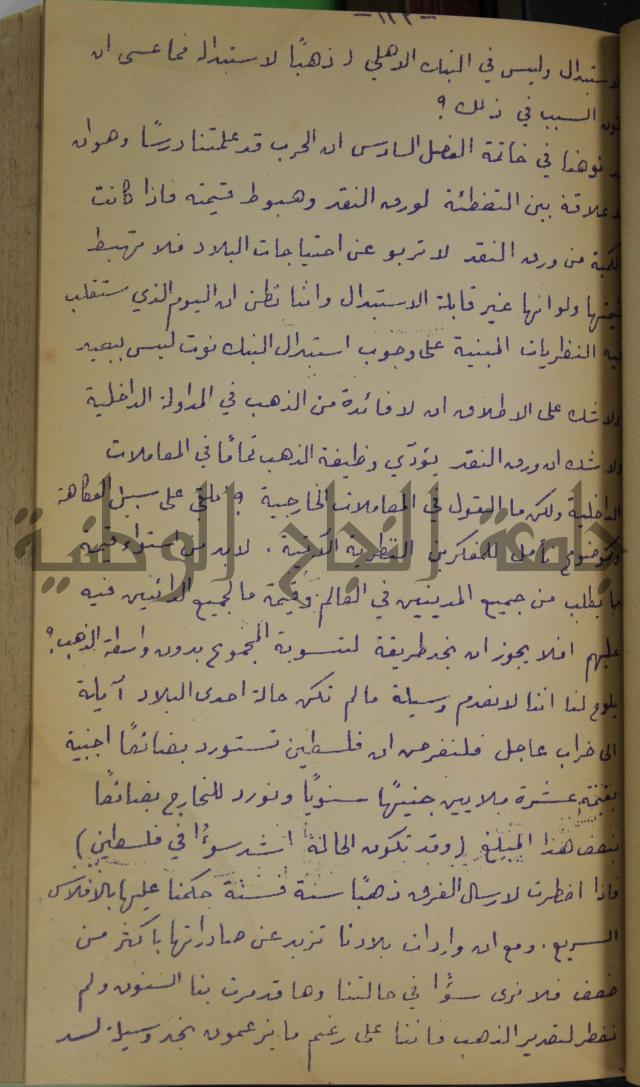 -١٢٣-
لاستبدال وليس في البنك الاهلي د ذهبًا لاستبداله فما عسى ان
يكون السبب في ذلك ؟
قد نوهنا في خاتمة الفصل السادس ان الحرب قد علمتنا درسًا وهو ان
لا علاقة بين التغطئة لورق النقد وهبوط قيمته فاذا كانت
الكمية من ورق النقد لا تربو عن احتياجات البلاد فلا تهبط
قيمتها ولو انها غير قابلة الاستبدال واننا نظن ان اليوم الذي ستقلب
فيه النظريات المبنية على وجوب استبدال البنك نوت ليس ببعيد
ولا شك على الاطلاق ان لا فائدة من الذهب في المداولة الداخلية
ولا شك ان ورق النقد يؤدّي وظيفة الذهب تمامًا في المعاملات
الداخلية ولكن ما القول في المعاملات الخارجية ؟ نلقي على سبيل الفكاهة
وكموضوع تأمل للمفكرين النظرية الآتية . لا بد من استواء قيمة
ما يطلب من جميع المدينين في العالم وقيمة ما لجميع الدائنين فيه
عليهم افلا يجوز ان نجد طريقة لتسوية المجموع بدون واسطة الذهب ؟
يلوح لنا اننا لا نعدم وسيلة ما لم تكن حالة احدى البلاد آيلة
الى خراب عاجل فلنفرض ان فلسطين تستورد بضائعًا اجنبية
بقيمة عشرة ملايين جنيهًا سنويًا وتورد للخارج بضائعًا
بنصف هذا المبلغ (وقد تكون الحالة اشد سوءًا في فلسطين)
فاذا اضطرت لارسال الفرق ذهبًا سنة فسنة حكمنا عليها بالافلاس
السريع . ومع ان واردات بلادنا تزيد عن صادراتها باكثر من
ضعف فلا نرى سوءًا في حالتنا وها قد مرت بنا السنون ولم
نضطر لتصدير الذهب فاننا على رغم ما يزعمون نجد وسيلة لسد
جامعة النجاح الوطنية